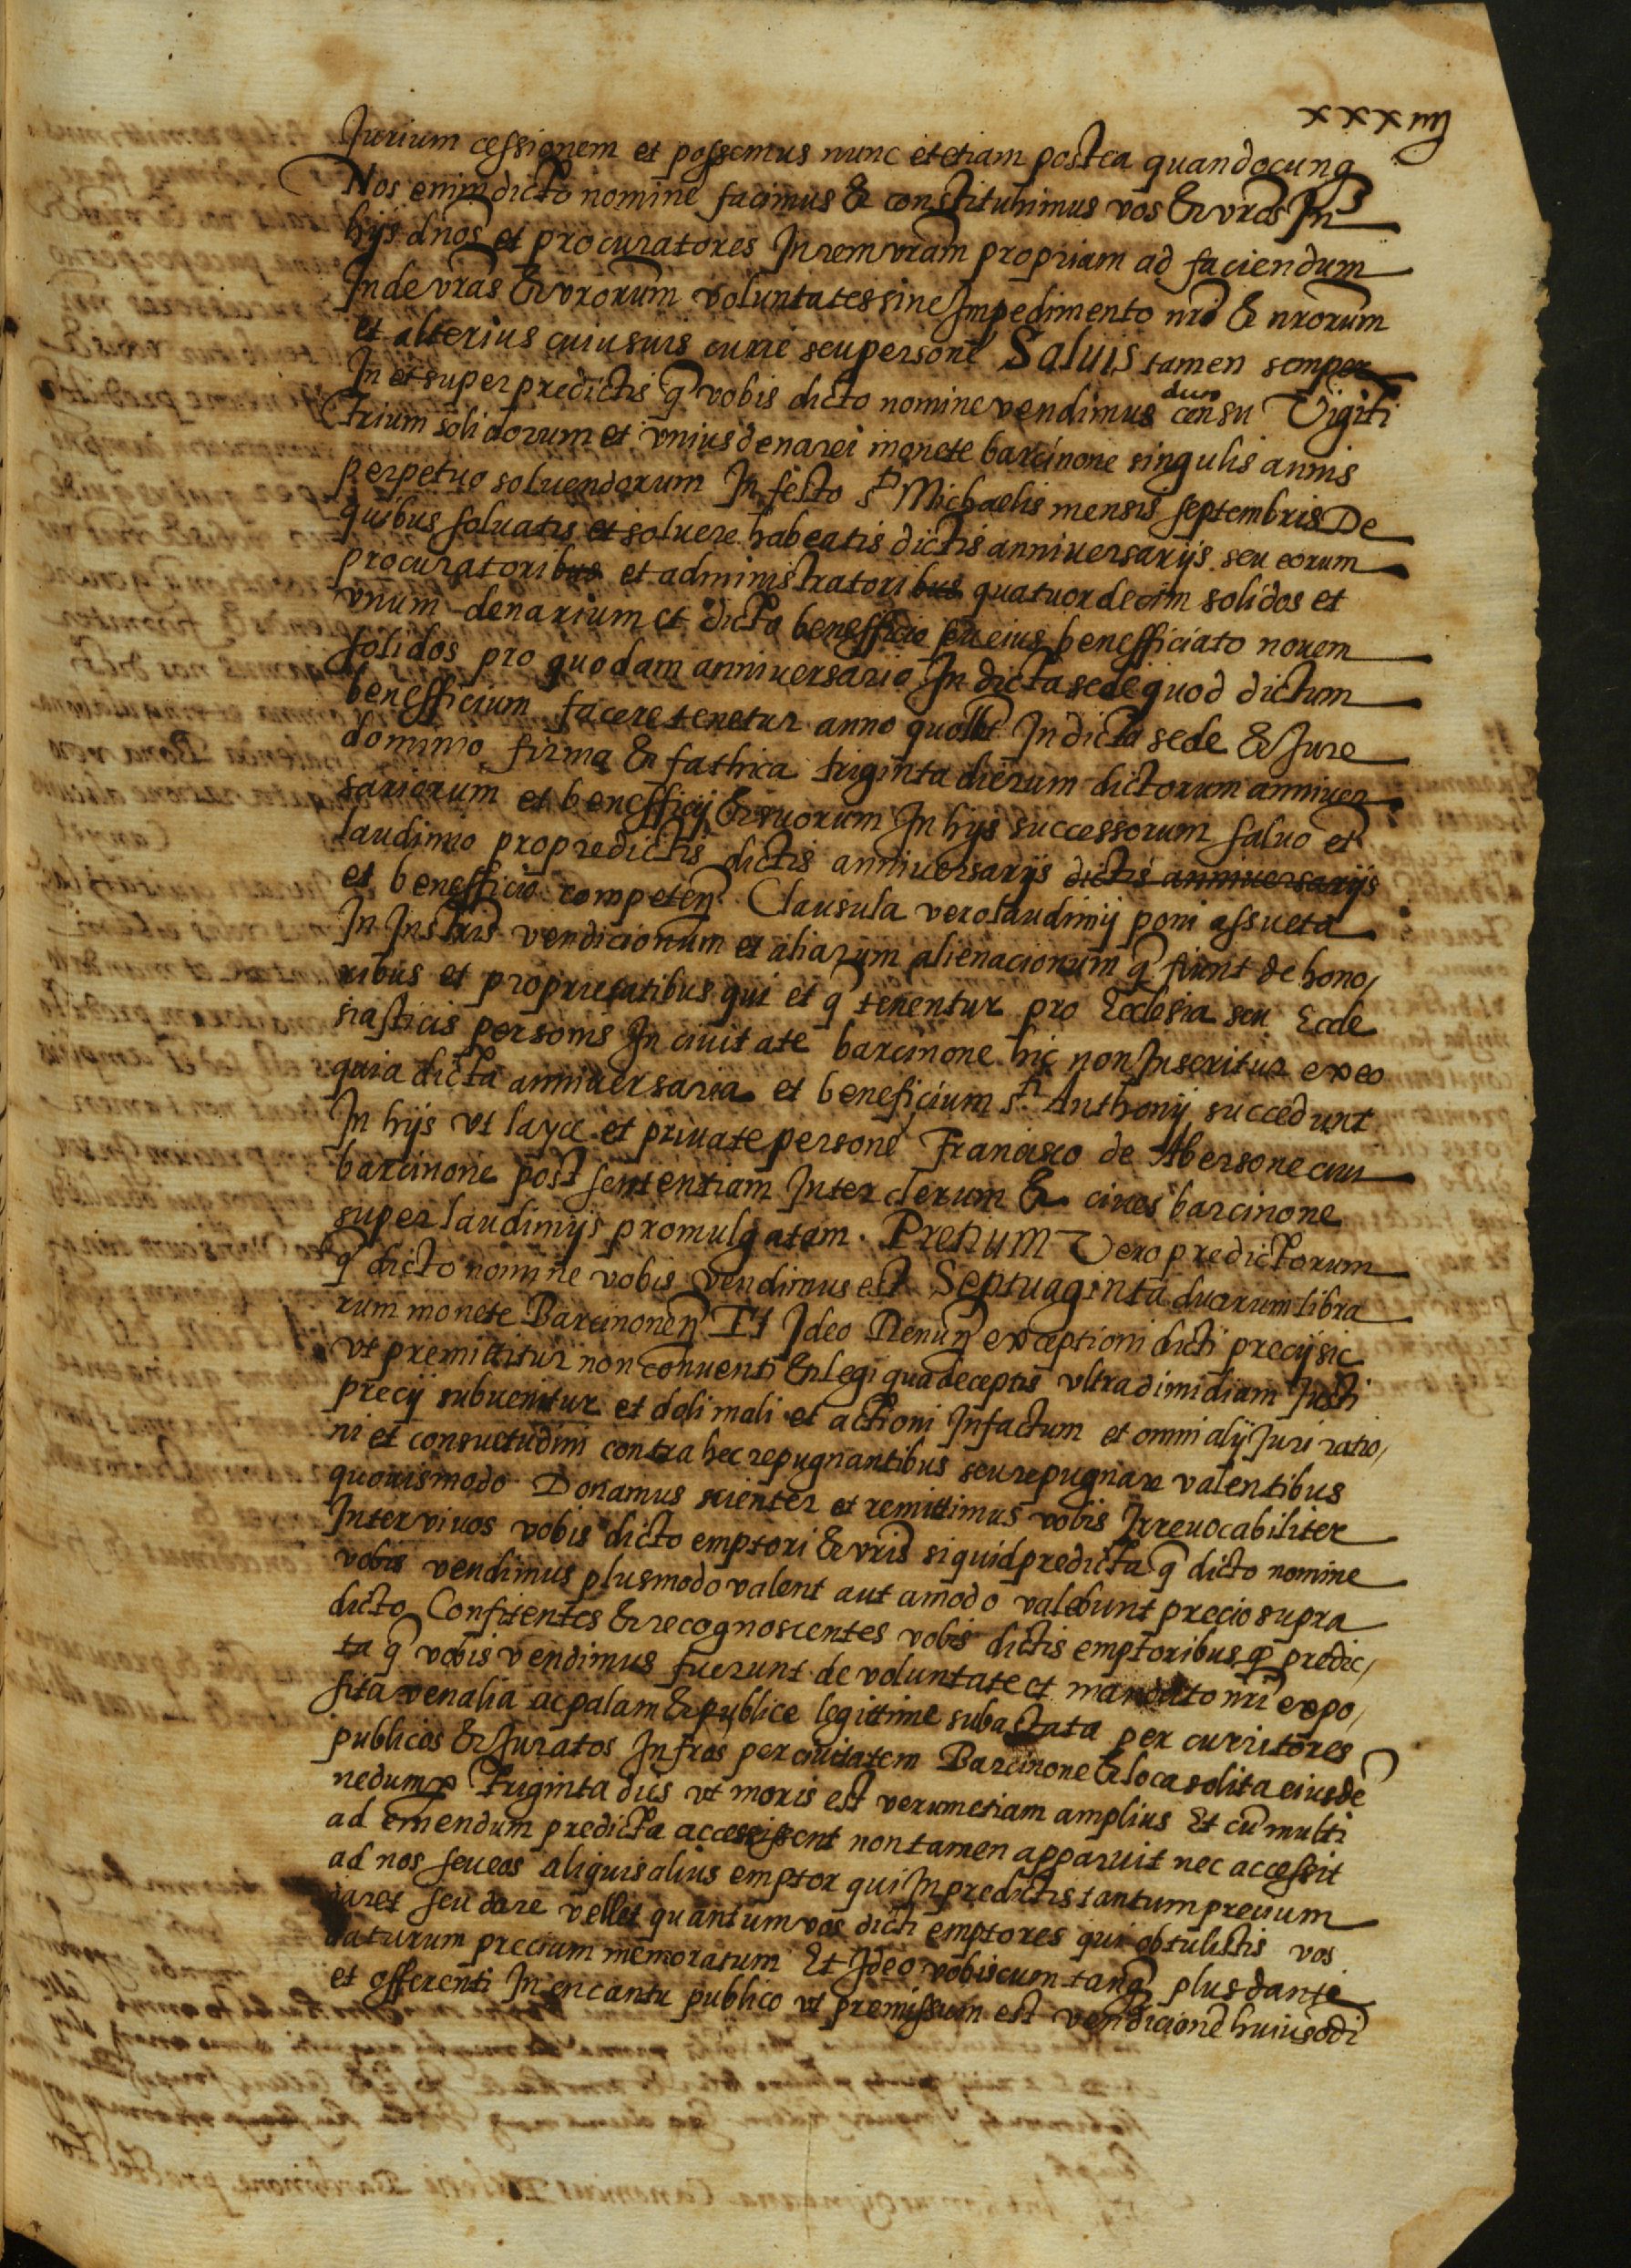 xxxiiij
Jurium cessionem et possemus nunc et etiam postea quandocunq
Nos enim dicto nomine facimus & constituhimus vos & vros In
hijs dnos et procuratores In rem vram propriam ad faciendum
Inde vras & vrorum voluntates sine Impedimento nro & nrorum
et alterius cuiusuis curie seu persone Saluis tamen semper
In et super predictis q vobis dicto nomine vendimus duro censu Vigiti
trium solidorum et vnius denarei monete barcinone singulis annis
perpetuo soluendorum In festo sti Michaelis mensis septembris De
quibus soluatis et soluere habeatis dictis anniuersarijs seu eorum
procuratoribus et administratoribus quatuordecim solidos et
vnum denarium et dicto benefficio seu eius benefficiato novem
solidos pro quodam anniuersario In dicta sede quod dictum
benefficium facere tenetur anno quolibet In dicta sede & Jure
dominio firma & fathica triginta dierum dictorum anniuer
sariorum et benefficij & suorum In hijs successorum saluo et
laudimio pro predictis dictis anniuersarijs dictis anniuersarijs
et benefficio competen Clausula vero laudimij poni assueta
In Instris vendicionum et aliarum alienacionum q fiunt de hono/
ribus et proprietatibus qui et q tenentur pro Ecclesia seu Eccle
siasticis personis In ciuitate barcinone hic non Inseritur ex eo
quia dicta anniuersaria et beneficium sti Anthonij succedunt
In hijs vt layce et priuate persone Francisco de Abersone ciui
barcinone post sententiam Inter clerum & ciues barcinone
super laudimijs promulgatam. Pretium Vero predictorum
q dicto nomine vobis vendimus est Septuaginta duarum libra
rum monete Barcinonen Et Ideo Renun exceptioni dicti precij sic
vt premittitur non conuenti & legi qua deceptis vltra dimidiam Justi
precij subuenitur et doli mali et actioni In factum et omni alij Juri ratio/
ni et consuetudini contra hec repugnantibus seu repugnare valentibus
quouismodo Donamus scienter et remittimus vobis Irreuocabiliter
Inter viuos vobis dicto emptori & vris si quid predicta q dicto nomine
vobis vendimus plus modo valent aut amodo valebunt precio supra
dicto Confitentes & recognoscentes vobis dictis emptoribus q predic/
ta q vobis vendimus fuerunt de voluntate et mandato nri expo/
sita venalia ac palam & publice legittime subastata per curritores
publicos & Juratos Infros per ciuitatem Barcinone & loca solita eiusde
nedum p triginta dies vt moris est verumetiam amplius Et cu multi
ad emendum predicta accessissent non tamen apparuit nec accessit
ad nos seu eos aliquis alius emptor qui In predictis tantum precium
daret seu dare vellet quantum vos dicti emptores qui obtulistis vos
daturum precium memoratum Et Ideo vobiscum tanq plus dante
et offerenti In encantu publico vt premissum est vendicione huiusodi